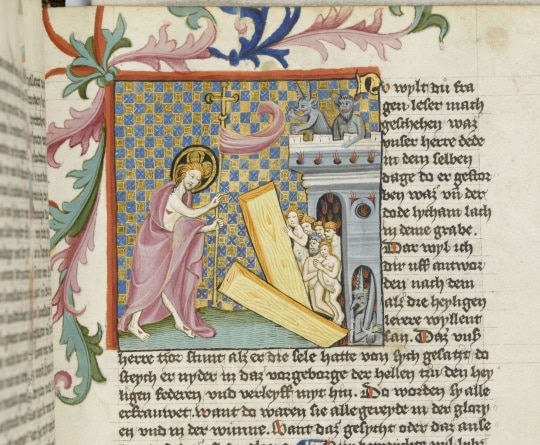 Nv wylt du fra
gen leser mach
geschehen waz
vnser herre dede
in dem selben
dage do er gestor
ben waz vn der
dode lycham lach
in deme grabe.
Dar wyl ich
dir vff antwor
den nach dem
als die heyligen
lerere wyssent
san. Daz vnß
herre ihor stunt alz er die sele hatte von sych gesant do
steych er nyder in daz vorgeborge der hellen zu den hey
ligen federen vnd verleyff myt hin. Do worden sy alle
erfrauwet. want do waren sie alle gereyde in der glory
en vnd in der wunne. Want daz gesycht oder daz anse